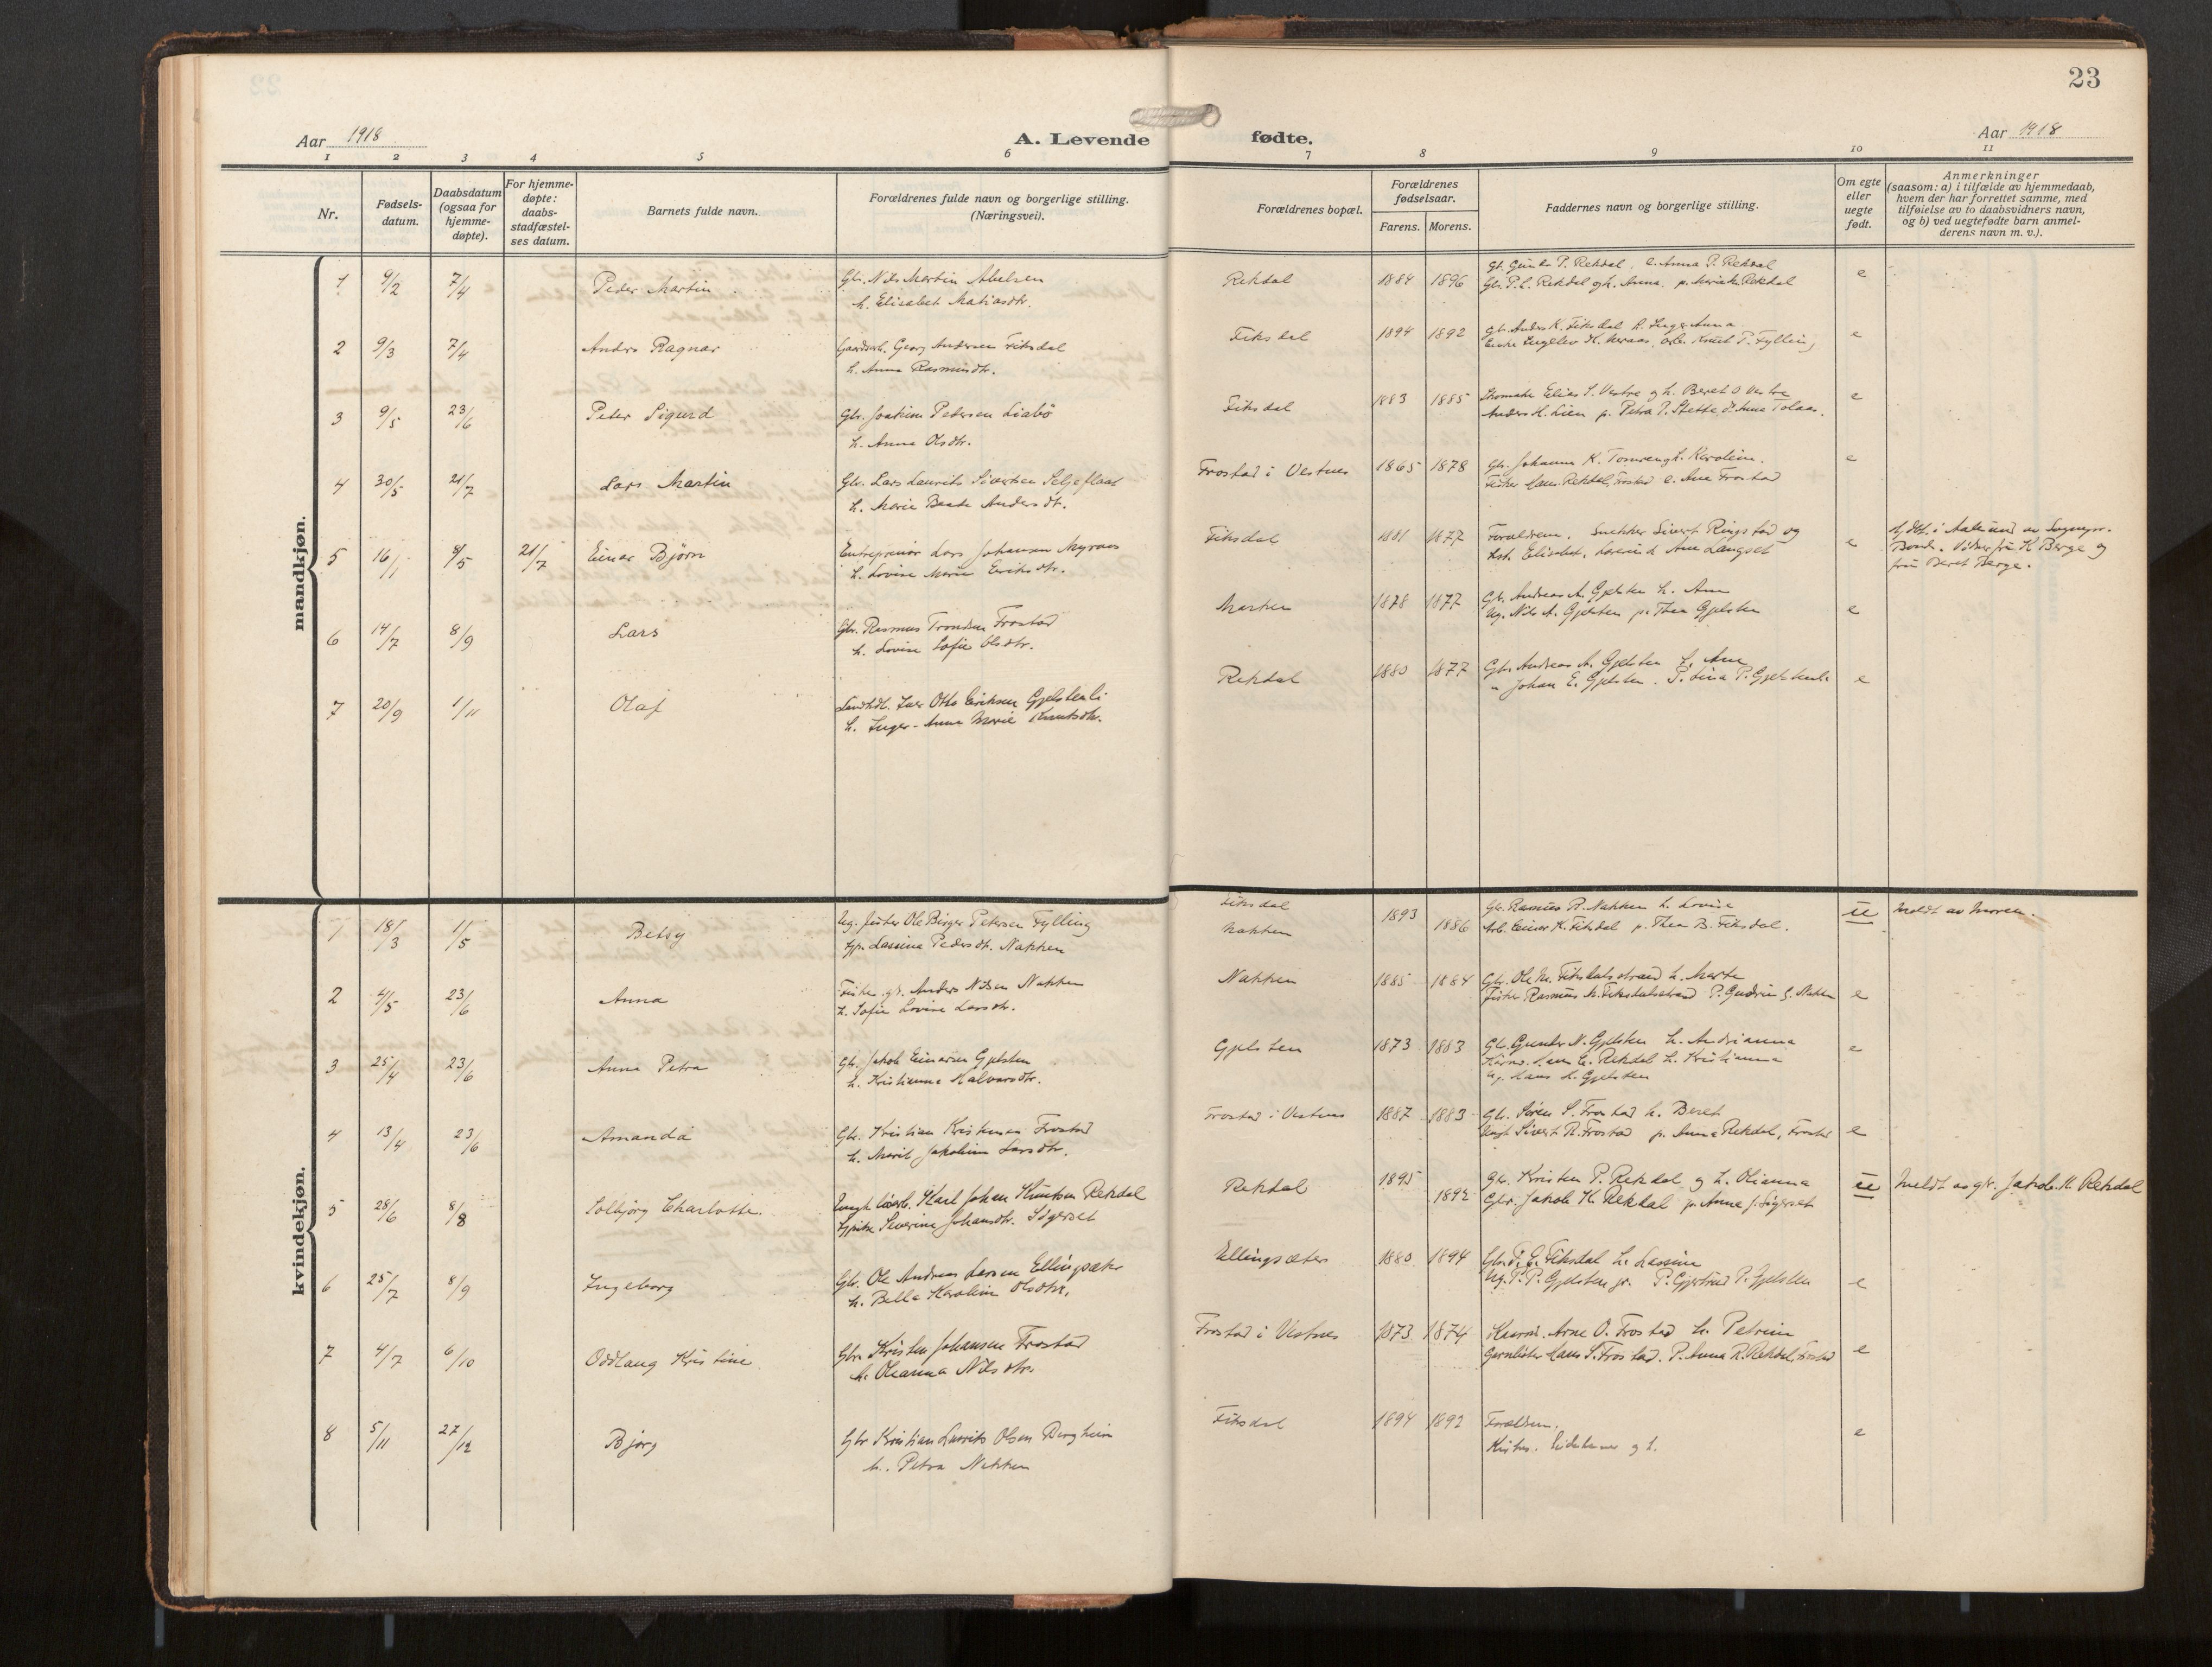 23
Aar 1918
A. Levende fødte.
Aar 1918
1 2 3 4 5 6 7 8 9 10 11
Nr.
Fødsels-
datum.
Daabsdatum
(ogsaa for
hjemme-
døpte).
For hjemme-
døpte:
daabs-
stadfæstel-
ses datum.
Barnets fulde navn.
Forældrenes fulde navn og borgerlige stilling.
(Næringsvei).
Forældrenes bopæl.
Forældrenes
fødselsaar.
Farens. Morens.
Faddernes navn og borgerlige stilling.
Om egte
eller
uegte
født.
Anmerkninger
(saasom: a) i tilfælde av hjemmedaab,
hvem der har forrettet samme, med
tilføielse av to daabsvidners navn,
og b) ved uegtefødte barn anmel-
derens navn m. v.).
mandkjøn.
1 9/2 7/4 Peder Martin Gbr. Nils Martin Abelsen
h. Elisabet Matiasdtr.
Rekdal 1884 1896 P. Rekdal, Anna P. Rekdal
Gbr. P. L. Rekdal og h. Anna Rekdal
e
2 9/3 7/4 Anders Ragnar Georg Andersen Fiksdal
h. Anna Rasmusdtr.
Fiksdal 1894 1892 Gbr. Anders K. Fiksdal h. Inger Anna
Knut P. Fylling
e
3 9/5 23/6 Peter Sigurd Gbr. Joakim Petersen Liabö
h. Anna Olsdtr.
Fiksdal 1883 1885 Elias S. Vestre og h. Beret O Vestre
Anders H. Lien p. Petra P. Stette Anna Tolaas.
e
4 30/5 21/7 Lars Martin Gbr. Lars Laurits Sivertsen Seljeflaat
h. Marie Beate Andersdt.
Frostad i Vestnes 1865 1878 Gbr. Johannes K. h. Karoline.
Fisker Hans Rekdal, Frostad Ane Frostad
e
5 16/1 9/5 21/7 Einar Björn Entreprenör Lars Johansen Myraas
h. Lovise Marie Eriksdtr.
Fiksdal 1881 1877 Forældrene. Snekker Sivert Ringstad og
Elisabet, Ane Langset
e
i Aalesund av Sognepr.
K Berge og
fru Beret Berge.
6 14/7 8/9 Lars Gbr. Rasmus Trondsen Frostad
h. Lovise Sofie Olsdtr.
1878 1877 Gbr. Andreas A. Gjelsten h. Ane
Ug. Nils A. Gjelsten p. Thea Gjelsten
e
7 20/9 1/11 Olaf Landhdl. Iver Otto Eriksen Gjelstenli
h. Inger-Anna Marie Knutsdtr.
Rekdal 1880 1877 Gbr. Andreas A. Gjelsten h. Ane
" Johan E. Gjelsten. P. Lina P. Gjelstenli
e
kvindekjøn.
1 18/3 1/5 Betsy Ug. fisker Ole Birger Petersen Fylling
Lassina Pedersdt. Nakken
Fiksdal
Nakken
1893
1886
Gbr. Rasmus R. Nakken h. Lovise
Arb. Einar K. Fiksdal p. Thea B. Fiksdal.
ue Meldt av moren.
2 4/5 23/6 Anna Fisker gbr. Anders Nilsen Nakken
h. Sofie Lovise Larsdtr.
Nakken 1885 1884 Gbr. Ole M. Fiksdalstrand h. Marte
Fisker Rasmus M. Fiksdalstrand P. Gudrun G. Nakken
e
3 25/4 23/6 Anna Petra Gbr. Jakob Einarsen Gjelsten
h. Kristianna Halvorsdtr.
Gjelsten 1873 1883 Gbr. Gunder N. Gjelsten h. Andrianna
Rekdal h. Kristianna
Ug. Hans L. Gjelsten
e
4 13/4 23/6 Amanda Gbr. Kristian Kristensen Frostad
h. Marit Jakobine Larsdtr.
Frostad i Vestnes 1887 1883 Gbr. Sören S. Frostad h. Beret
Sivert R. Frostad p. Anna Rekdal, Frostad
e
5 28/6 8/8 Solbjörg Charlotte. Karl Johan Knutsen Rekdal
Severine Johansdtr. Sögerset
Rekdal 1895
1892
Gbr. Kristen P. Rekdal og h. Olianna
Gbr. Jakob K. Rekdal p. Anna J. Sögerset
ue Meldt av gbr. Jakob K. Rekdal
6 25/7 8/9 Ingeborg Gbr. Ole Andreas Larsen Ellingsæter
h. Bella Karoline Olsdtr.
Ellingsæter 1880 1894 Gbr. Fiksdal h. Lassine
Ug. P. P. Gjelsten jr. P. Gjertrud P. Gjelsten
e
7 4/7 6/10 Oddlaug Kristine Gbr. Kristen Johansen Frostad
h. Oleanna Nilsdtr.
Frostad i Vestnes 1873 1874 Arne O. Frostad h. Petrine
Hans S. Frostad. P. Anna R. Rekdal, Frostad
e
8 5/11 27/12 Bjørg Gbr Kristian Laurits Olsen Bergheim
h. Petra Nakken
Fiksdal 1894 1892 Forældrene.
og h.
e